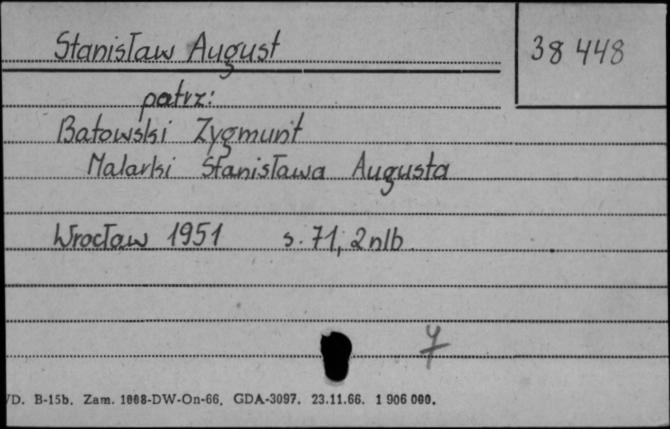 Stanisław August
38 448
patrz:
Batowski Zygmunt
Malarki Stanisława Augusta
Wrocław 1951 s. 71, 2 nlb
7
D. B-15b. Zam. 1008-DW-On-66. GDA-3097. 23.11.66. 1 906 000.